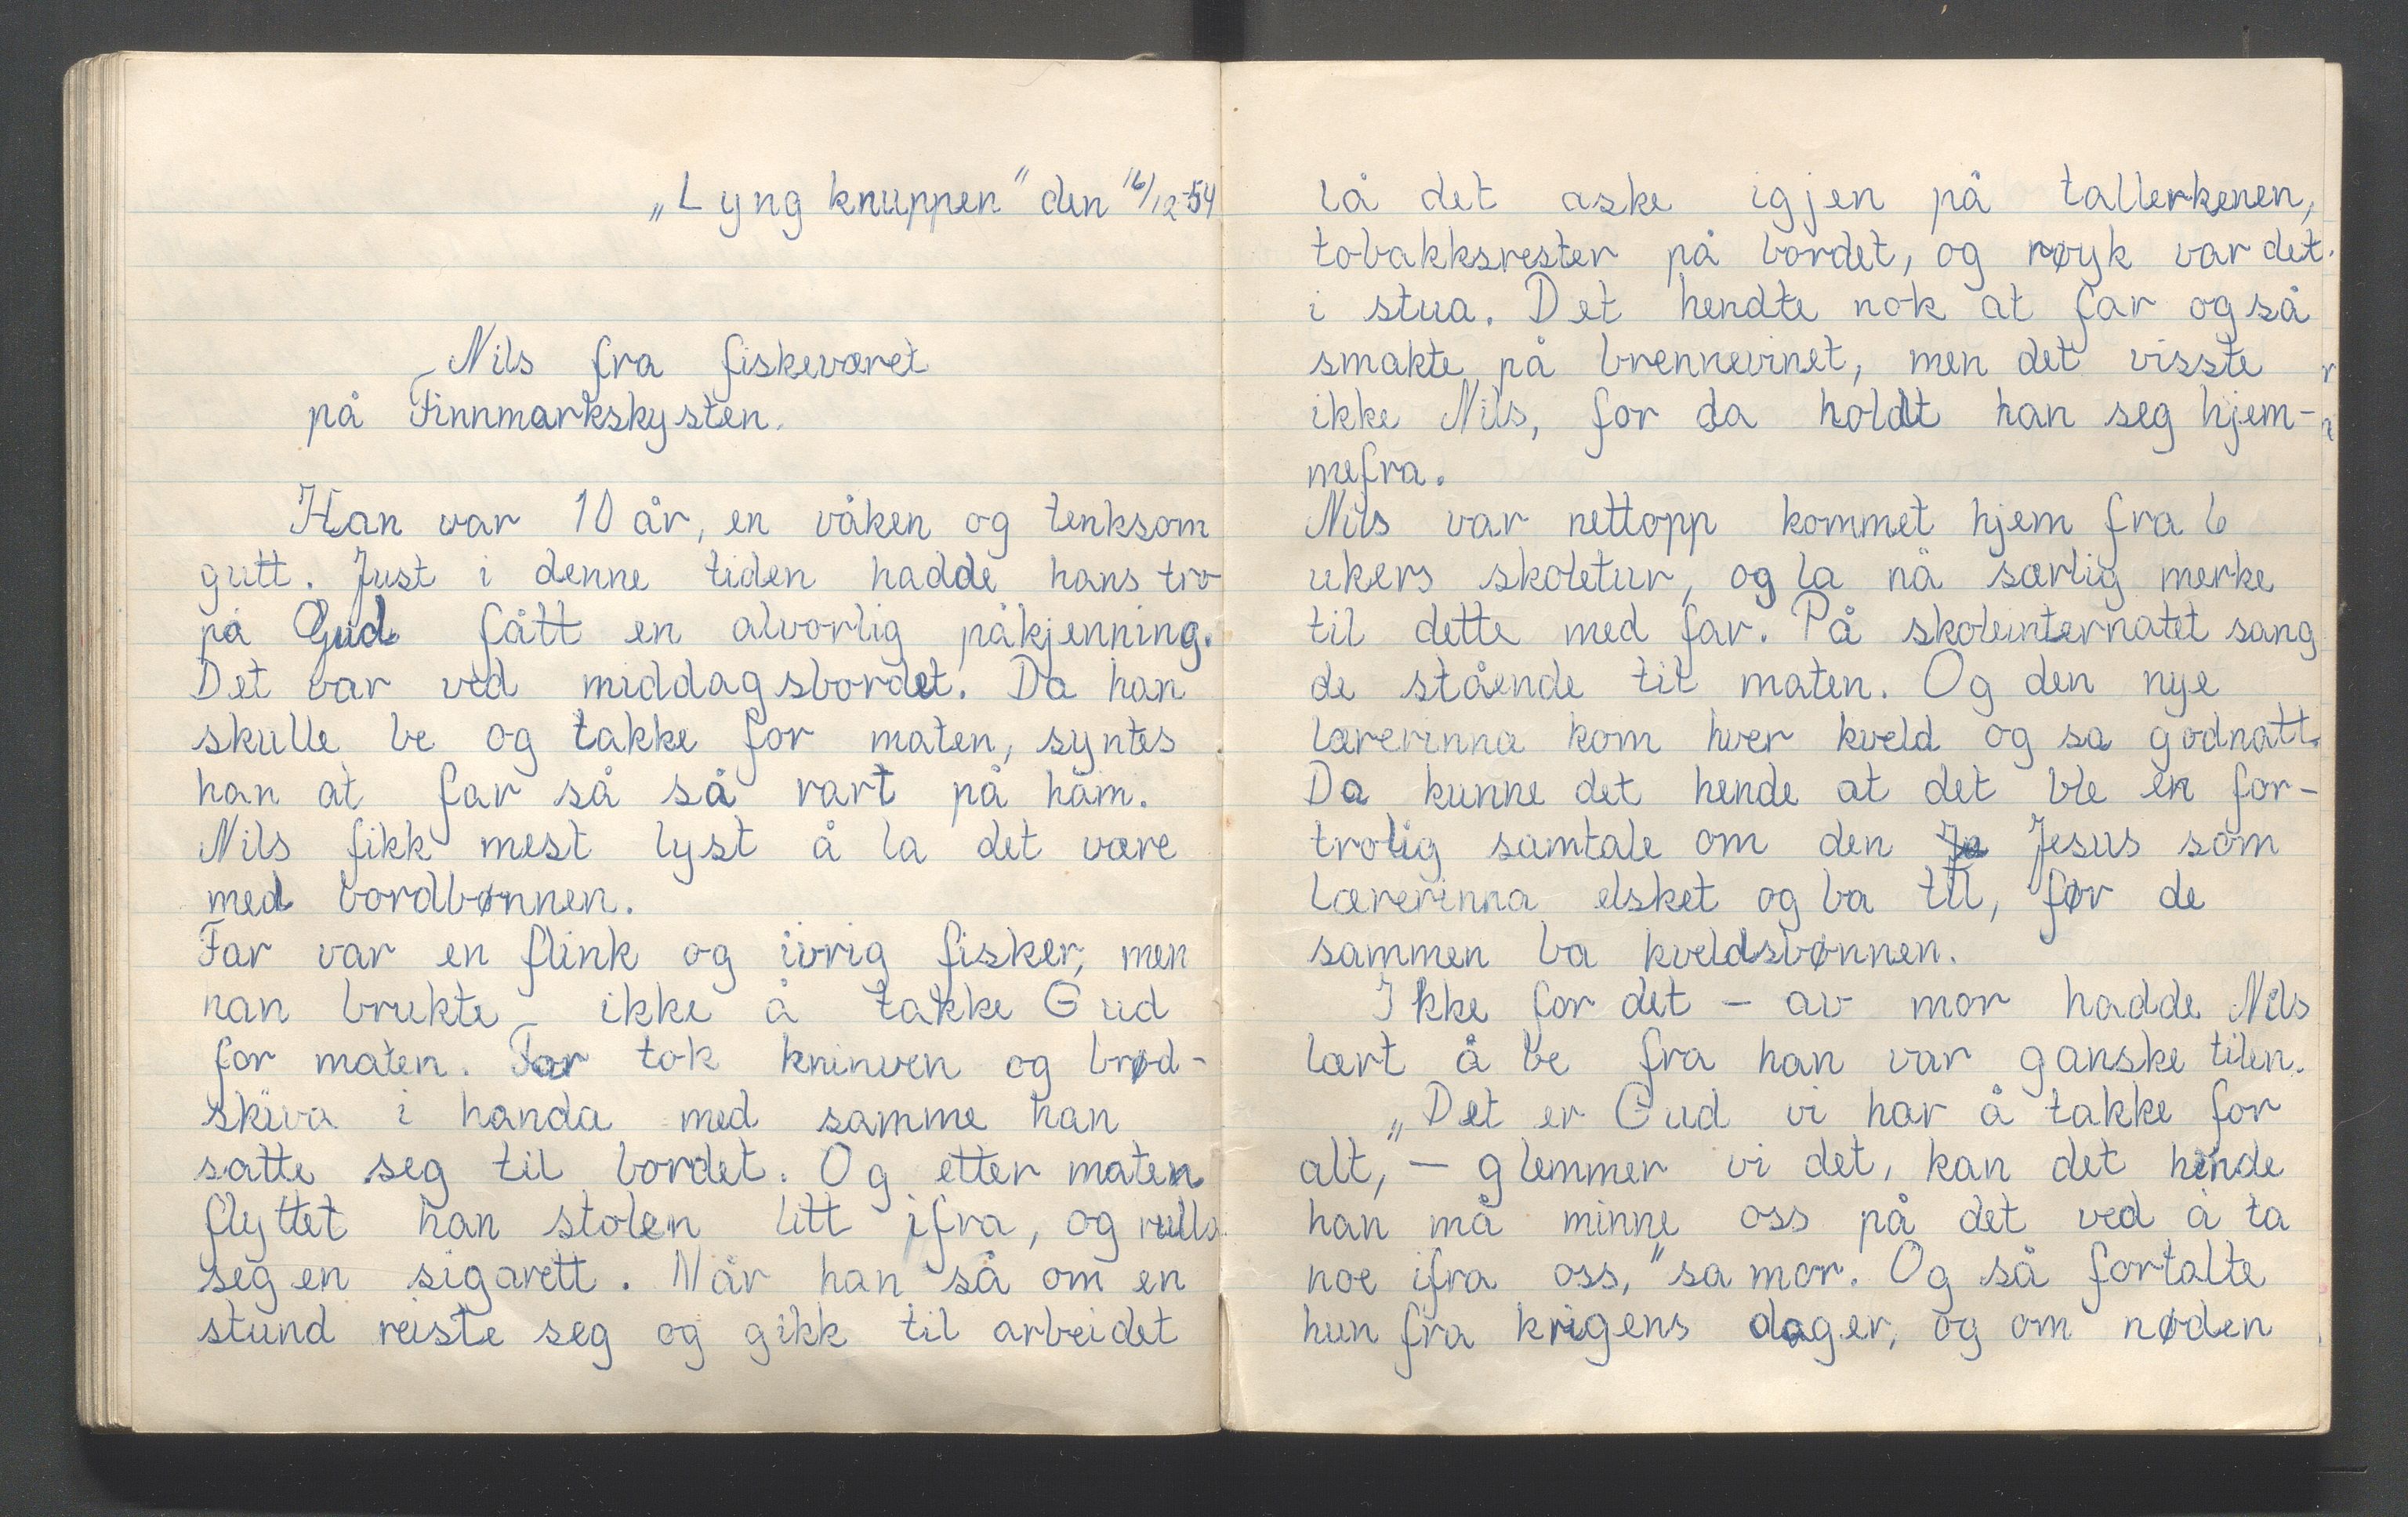 „Lyngknuppen" den 16/12-54
Nils fra fiskeværet
på Finnmarkskysten.
Han var 10 år, en våken og tenksom
gutt. Just i denne tiden hadde hans tro
på Gud fått en alvorlig påkjenning.
Det var ved middagsbordet. Da han
skulle be og takke for maten, syntes
han at far så så rart på ham.
Nils fikk mest lyst å la det være
med bordbønnen.
Far var en flink og ivrig fisker, men
han brukte ikke å takke Gud
for maten. Far tok kninven og brød-
skiva i handa med samme han
satte seg til bordet. Og etter maten
flyttet han stolen litt ifra, og rulla
seg en sigarett. Når han så om en
stund reiste seg og gikk til arbeidet
lå det aske igjen på tallerkenen,
tobakksrester på bordet, og røyk var det
i stua. Det hendte nok at far også
smakte på brennevinet, men det visste
ikke Nils, for da holdt han seg hjem-
mefra.
Nils var nettopp kommet hjem fra 6
ukers skoletur, og la nå særlig merke
til dette med far. På skoleinternatet sang
de stående til maten. Og den nye
lærerinna kom hver kveld og sa godnatt.
Da kunne det hende at det ble en for-
trolig samtale om den Je Jesus som
lærerinna elsket og ba til, før de
sammen ba kveldsbønnen.
Ikke for det – av mor hadde Nils
lært å be fra han var ganske titen.
„Det er Gud vi har å takke for
alt, – glemmer vi det, kan det hende
han må minne oss på det ved å ta
noe ifra oss," sa mor. Og så fortalte
hun fra krigens dager, og om nøden